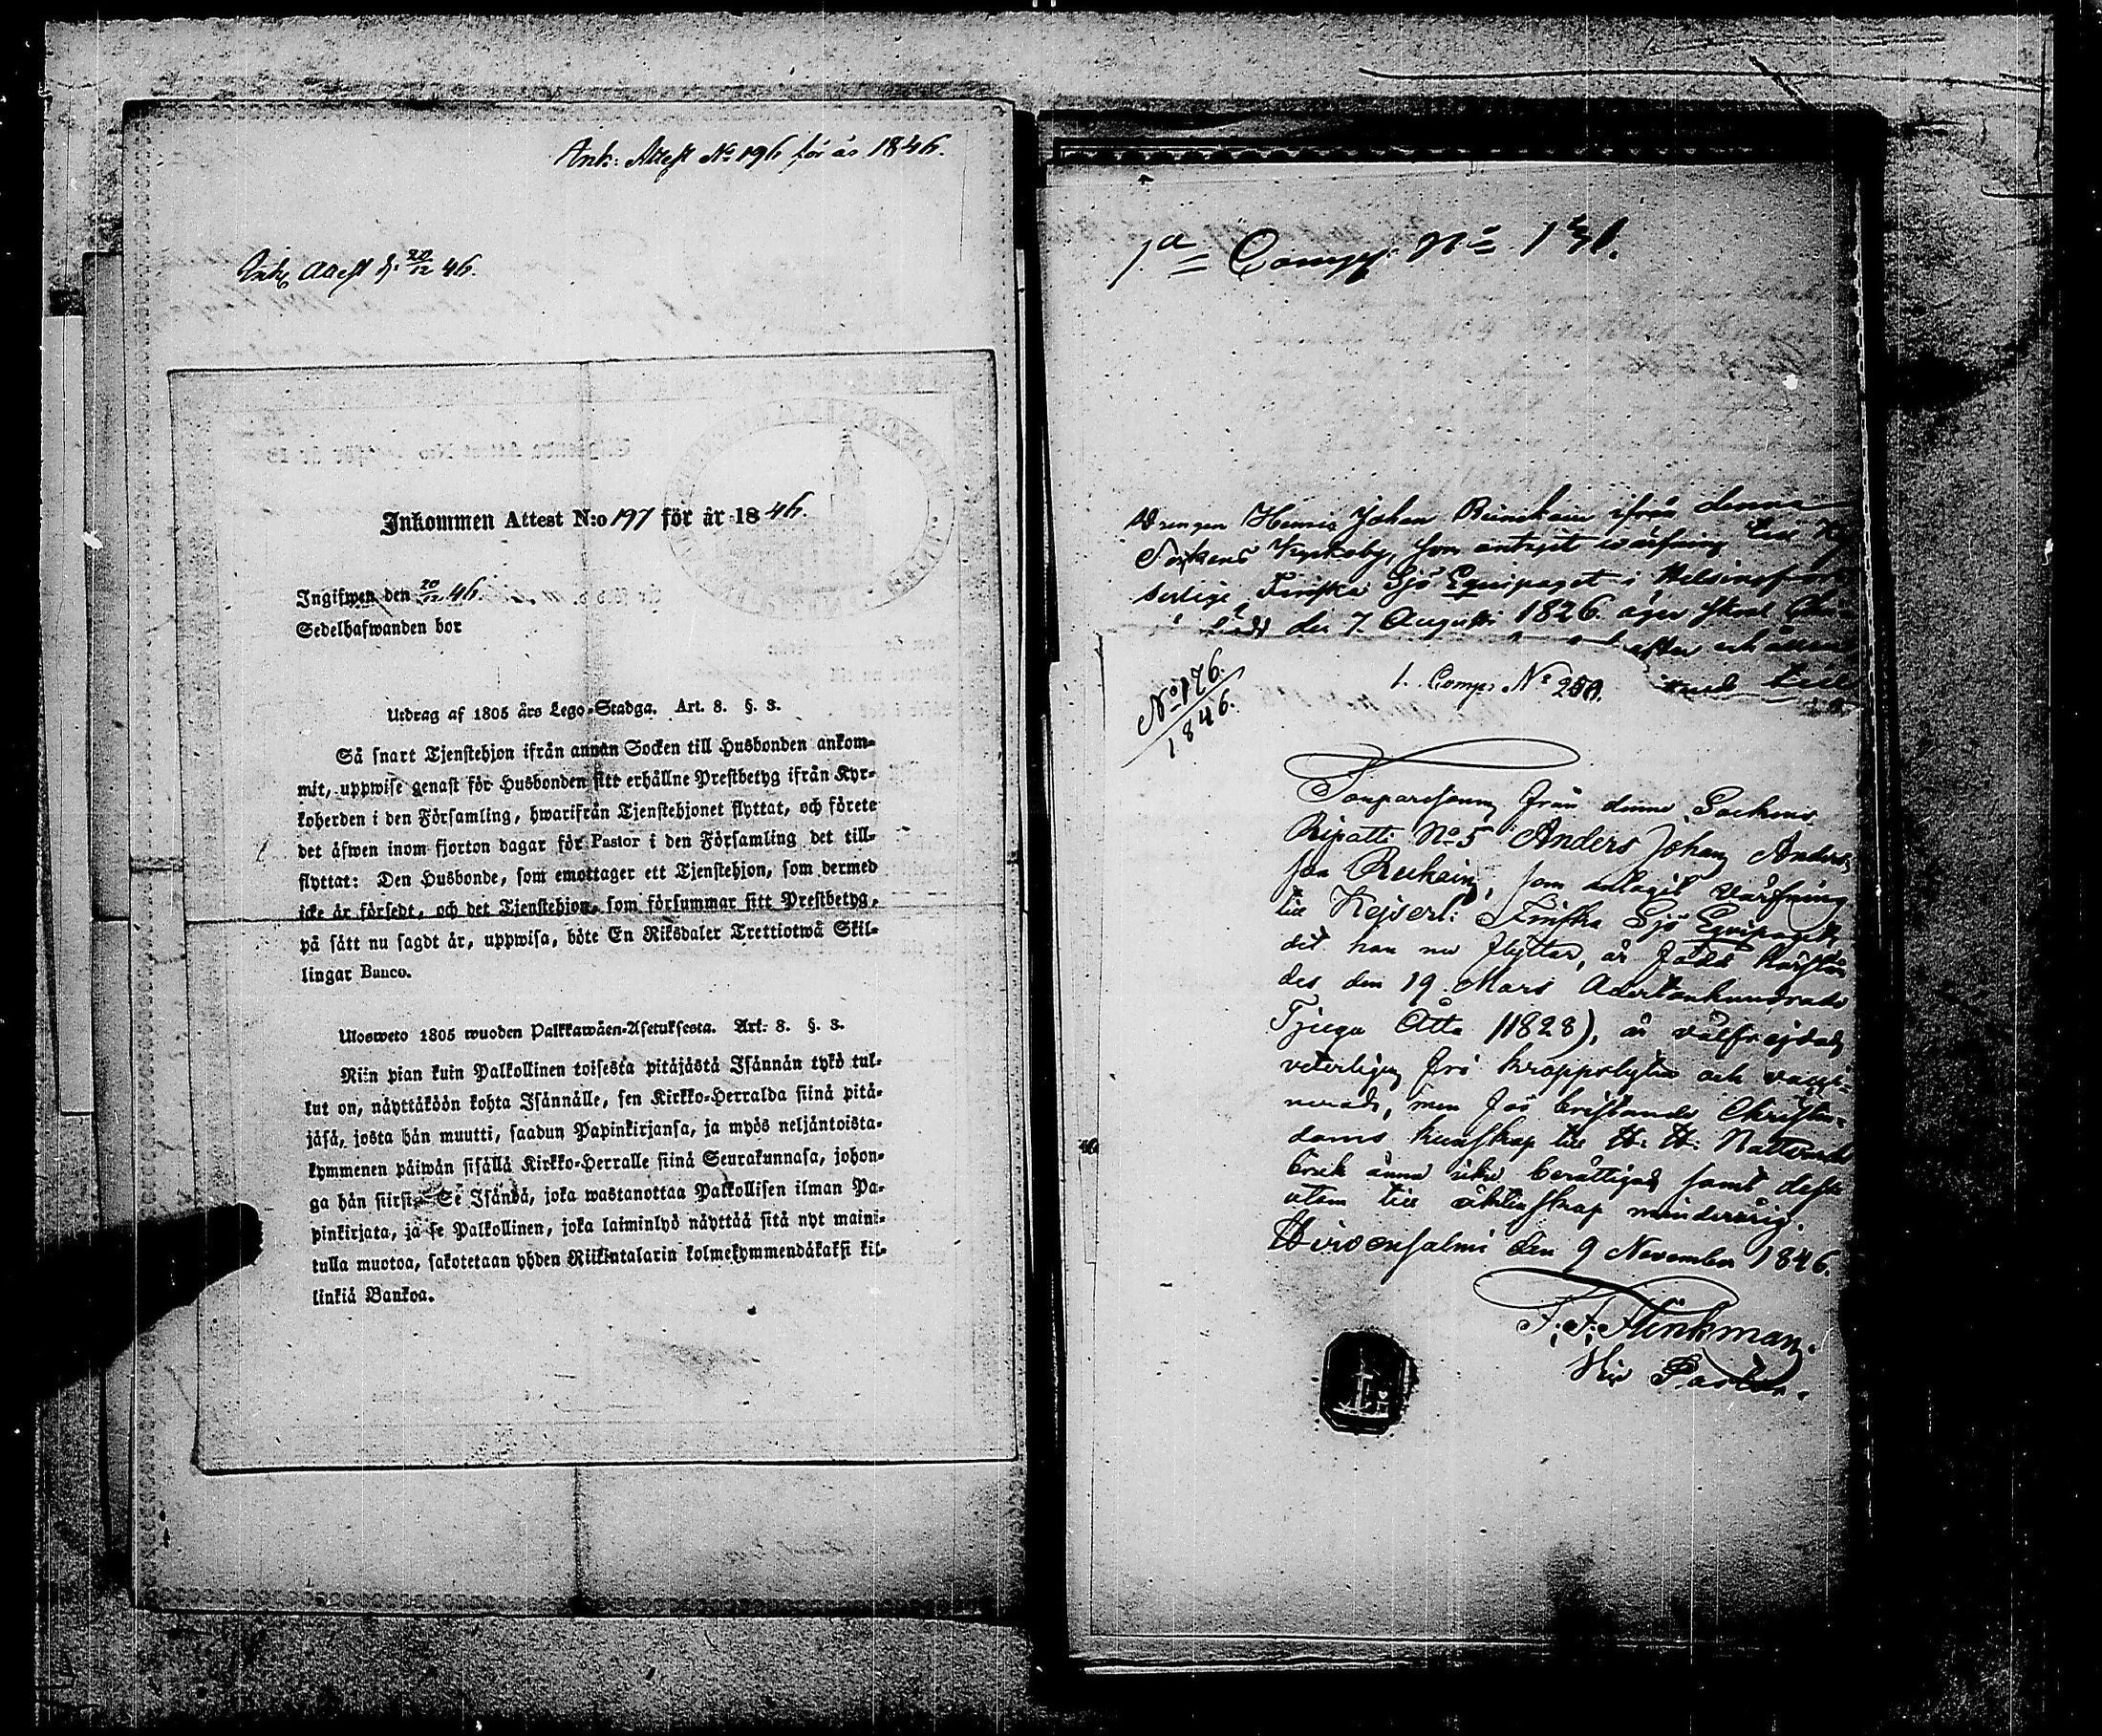 Ank: Attest No 196 för år 1846.
Ank: Attest d. 20/12 46.
Inkommen Attest N:o 197 för år 1846.
Ingifwen den 20/12 46.
Sedelhafwanden bor
Utdrag af 1805 års Lego-Stadga. Art. 8. §. 3.
Så snart Tjenstehjon ifrån annan Socken till Husbonden ankom-
mit, uppwise genast för Husbonden sitt erhållne Prestbetyg ifrån Kyr-
koherden i den Församling, hwarifrån Tjenstehjonet flyttat, och förete
det äfwen inom fjorton dagar för Pastor i den Församling det till-
flyttat: Den Husbonde, som emottager ett Tjenstehjon, som dermed
icke är försedt, och det Tjenstehjon, som försummar sitt Prestbetyg,
på sätt nu sagdt är, uppwisa, böte En Riksdaler Trettiotwå Skil-
lingar Banco.
Ulosweto 1805 wuoden Palkkawäen-Asetuksesta. Art. 8. §. 3.
Niin pian kuin Palkollinen toisesta pitäjästä Isännän tykö tul-
lut on, näyttäköön kohta Isännälle, sen Kirkko-Herralda siinä pitä-
jäsä, josta hän muutti, saadun Papinkirjansa, ja myös neljäntoista-
kymmenen päiwän sisällä Kirkko-Herralle siinä Seurakunnasa, johon-
ga hän siirsi. Se Isändä, joka wastanottaa Palkollisen ilman Pa-
pinkirjata, ja se Palkollinen, joka laiminlyö näyttää sitä nyt maini-
tulla muotoa, sakotetaan yhden Riikintalarin kolmekymmendäkaksi kil-
linkiä Bankoa.
1a Comp: No
Drengen Henric Johan ifrån denna
Sockens by, som antagit värfning till
serlige Finska Sjö Equipaget i Helsingfors
född den 7 Augusti 1826. äger
efter och
No 176.
1846.
1. Comp: No 250.
från denne Sockens
Ripatti No 5 Anders Johan Anders
son som antagit värfning
till Kejserl: Finska Sjö Equipaget
dit han nu flyttar, är född
des den 19 Mars Adertonhundrade
Tjugu Åtta (1828), är välfrejdad,
veterligen fri kroppslyten och vacci-
nerad, men för bristande Christen-
doms kunskap till H. H. Nattvards
bruk ännu icke berättigad samt dess
utom till äktenskap minderårig.
Hirvensalmi den 9 November 1846.
Flinkman.
Vice Pastor.